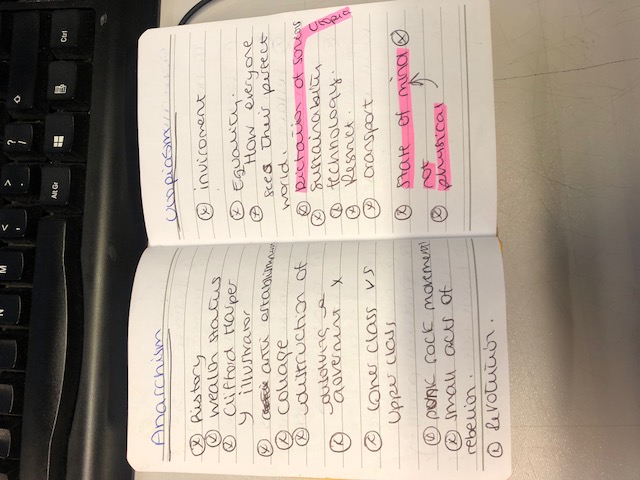 Anarchism
history
wealth status
Clifford Harper
illustrator
anti establishment
collage
destruction of
government
lower class vs
Upper class
punk rock movement
small acts of
rebelion.
Revolution.
Utopiasm
inviroment
Equality.
How everyone
sees their perfect
world.
of
Utopia
Sustainability
technology.
Respect.
transport
state of mind
not
physical
Ctrl
Alt Gr
? /
> .
< ,
M